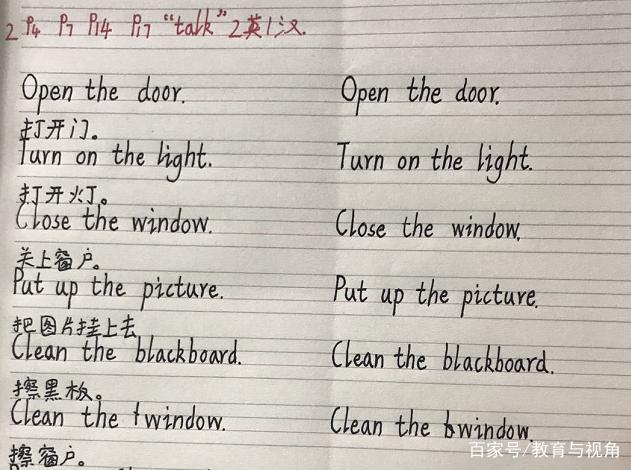 2 P4 P7 P14 P17 “talk” 2英1汉.
Open the door. Open the door.
打开门。
Turn on the light. Turn on the light.
打开灯。
Close the window. Close the window.
关上窗户。
Put up the picture. Put up the picture.
把图片挂上去
Clean the blackboard. Clean the blackboard.
擦黑板。
Clean the window. Clean the window
擦窗户。
百家号/教育与视角